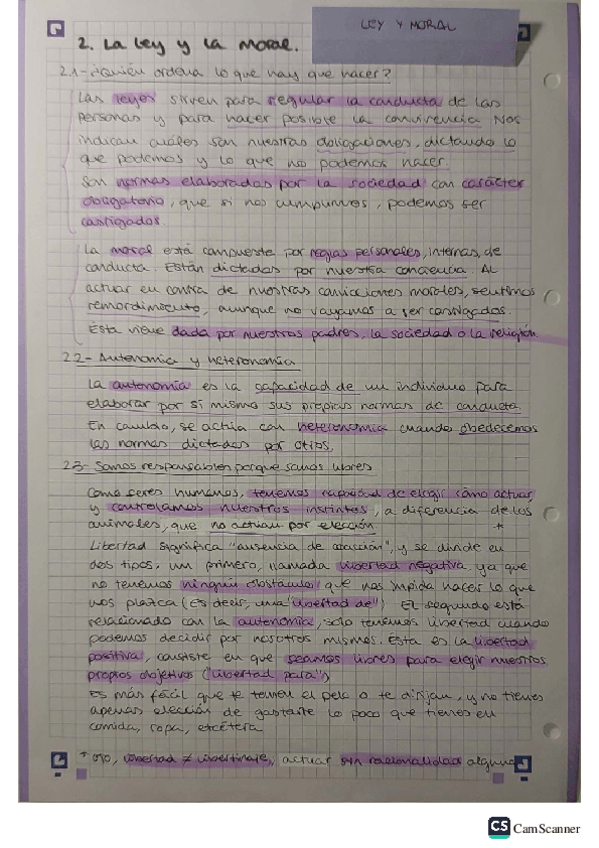 LEY Y MORAL
2. La Ley y la moral.
2.1- ¿Quién ordena lo que hay que hacer?
Las leyes sirven para regular la conducta de las
personas y para hacer posible la convivencia. Nos
indican cuáles son nuestras obligaciones, dictando lo
que podemos y lo que no podemos hacer.
Son normas elaboradas por la sociedad con carácter
obligatorio, que si no cumplimos, podemos ser
castigados.
La moral está compuesta por reglas personales, internas, de
conducta. Están dictadas por nuestra conciencia. Al
actuar en contra de nuestras convicciones morales, sentimos
remordimiento, aunque no vayamos a ser castigados.
Ésta viene dada por nuestros padres, la sociedad o la religión
2.2- Autonomía y heteronomía
La autonomía es la capacidad de un individuo para
elaborar por sí mismo sus propias normas de conducta.
En cambio, se actúa con heteronomía cuando obedecemos
las normas dictadas por otros.
2.3- Somos responsables porque somos libres
Como seres humanos, tenemos capacidad de elegir cómo actuar
y controlamos nuestros instintos, a diferencia de los
animales, que no actúan por elección *
Libertad significa "ausencia de coacción", y se divide en
dos tipos, un primero, llamada libertad negativa ya que
no tenemos ningún obstáculo que nos impida hacer lo que
nos plazca (Es decir, una "libertad de") El segundo está
relacionado con la autonomía, solo tenemos libertad cuando
podemos decidir por nosotros mismos. Esta es la libertad
positiva, consiste en que seamos libres para elegir nuestros
propios objetivos ("libertad para")
Es más fácil que te tomen el pelo o te dirijan, y no tienes
apenas elección de gastarte lo poco que tienes en
comida, ropa, etcétera
* Ojo, libertad ≠ libertinaje, actuar sin racionalidad alguna
CS CamScanner